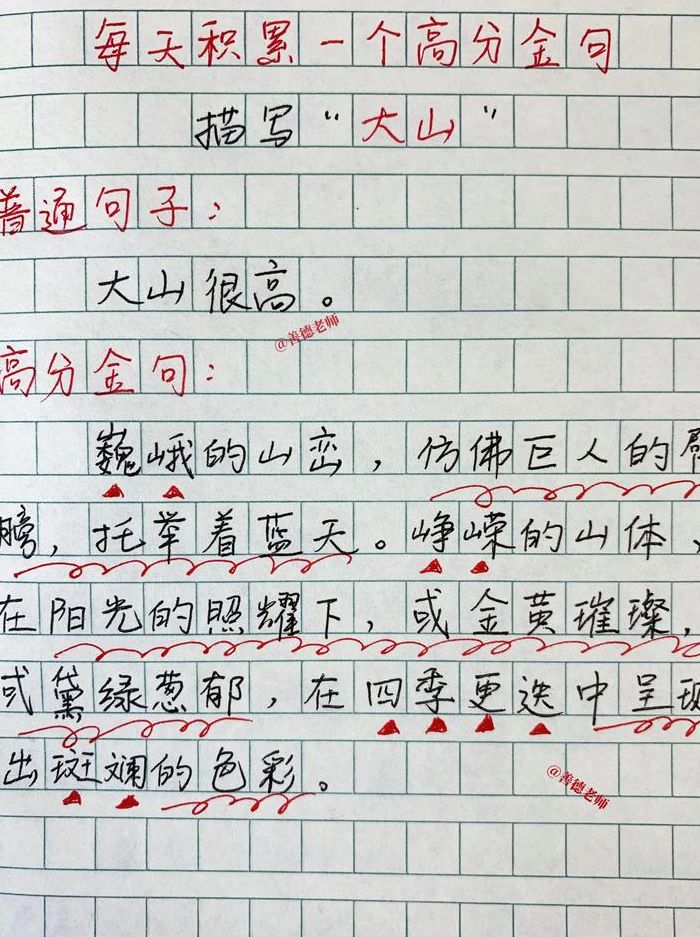 每天积累一个高分金句
描写“大山”
普通句子：
大山很高。
@善德老师
高分金句：
巍峨的山峦，仿佛巨人的臂
膀，托举着蓝天。峥嵘的山体，
在阳光的照耀下，或金黄璀璨，
或黛绿葱郁，在四季更迭中呈现
出斑斓的色彩。
@善德老师